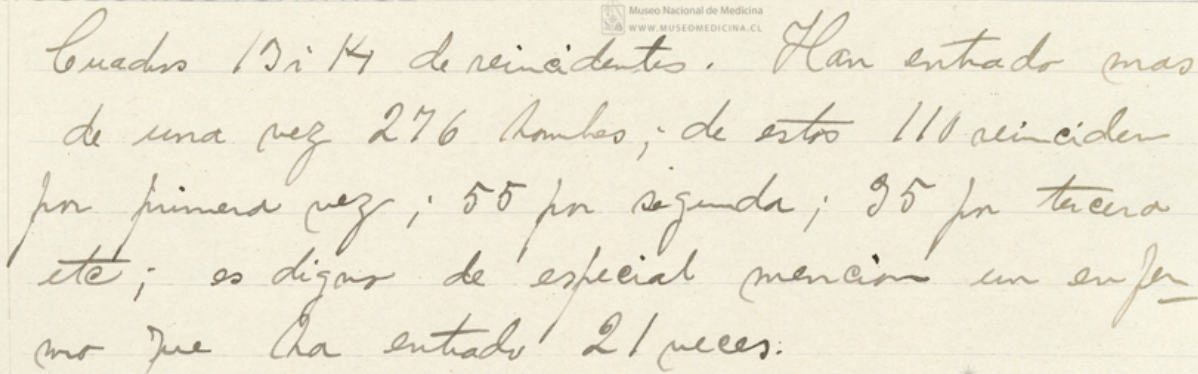 Museo Nacional de Medicina
WWW.MUSEOMEDICINA.CL
Cuadros 13 i 14 de reincidentes. Han entrado mas
de una vez 276 hombres; de estos 110 reinciden
por primera vez; 55 por segunda; 35 por tercera
etc; es digno de especial mencion un enfer
mo que ha entrado 21 veces.